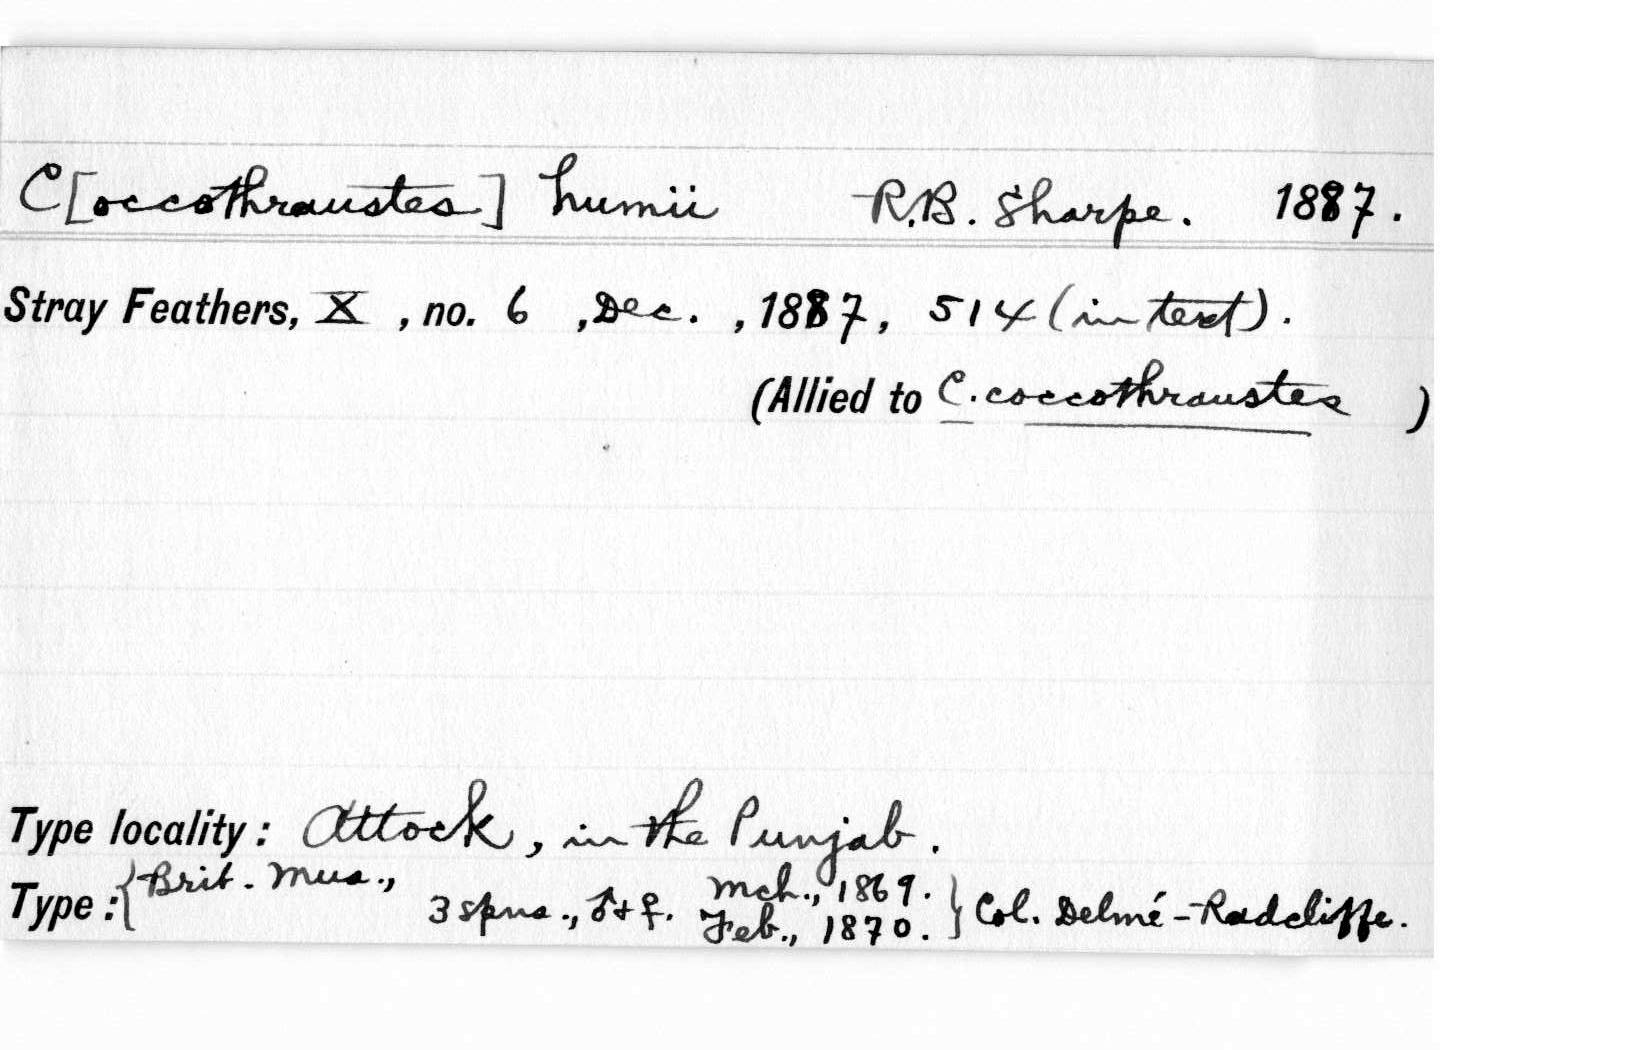 C[occothraustes] humii R.B. Sharpe. 1887.
Stray Feathers, X, no. 6, Dec., 1887, 514 (in text).
(Allied to C. coccothraustes)
Type locality: Attock, in the Punjab.
Type: {Brit. Mus., 3 spns., ♂ + ♀. Mch., 1869. Feb., 1870.} Col. Delmé-Radcliffe.